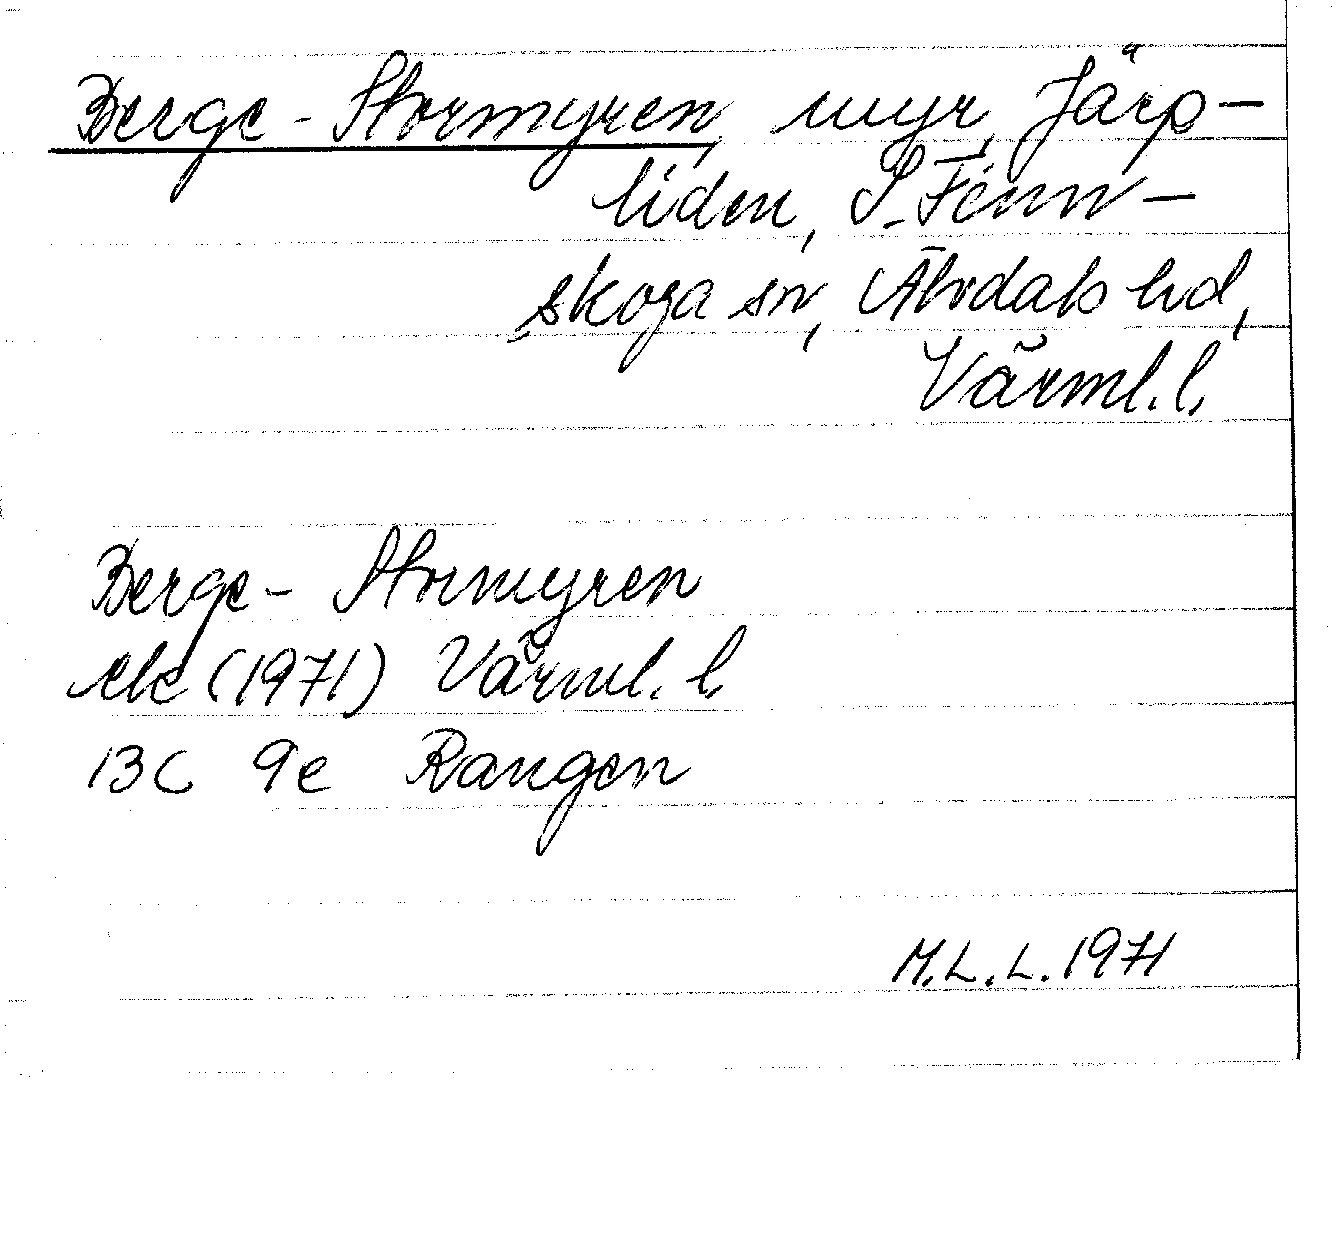 Berge-Stormyren, myr, Järp-
liden, S. Finn-
skoga sn, Älvdals hd,
Värml. l.
Berge-Stormyren
ek (1971) Värml. l.
13C 9e Rangen
M.L.L. 1971